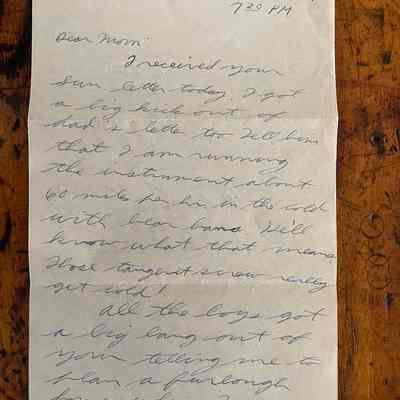 7 30 PM
Dear Mom
I received your
Sun letter today. I got
a big kick out of
dad's letter too Tell him
that I am running
the instrument about
60 miles per hr. in the cold
with bear hand He'll
know what that means
Those tangent screw really
get cold!
All the boys got
a big bang out of
your telling me to
plan a furlough